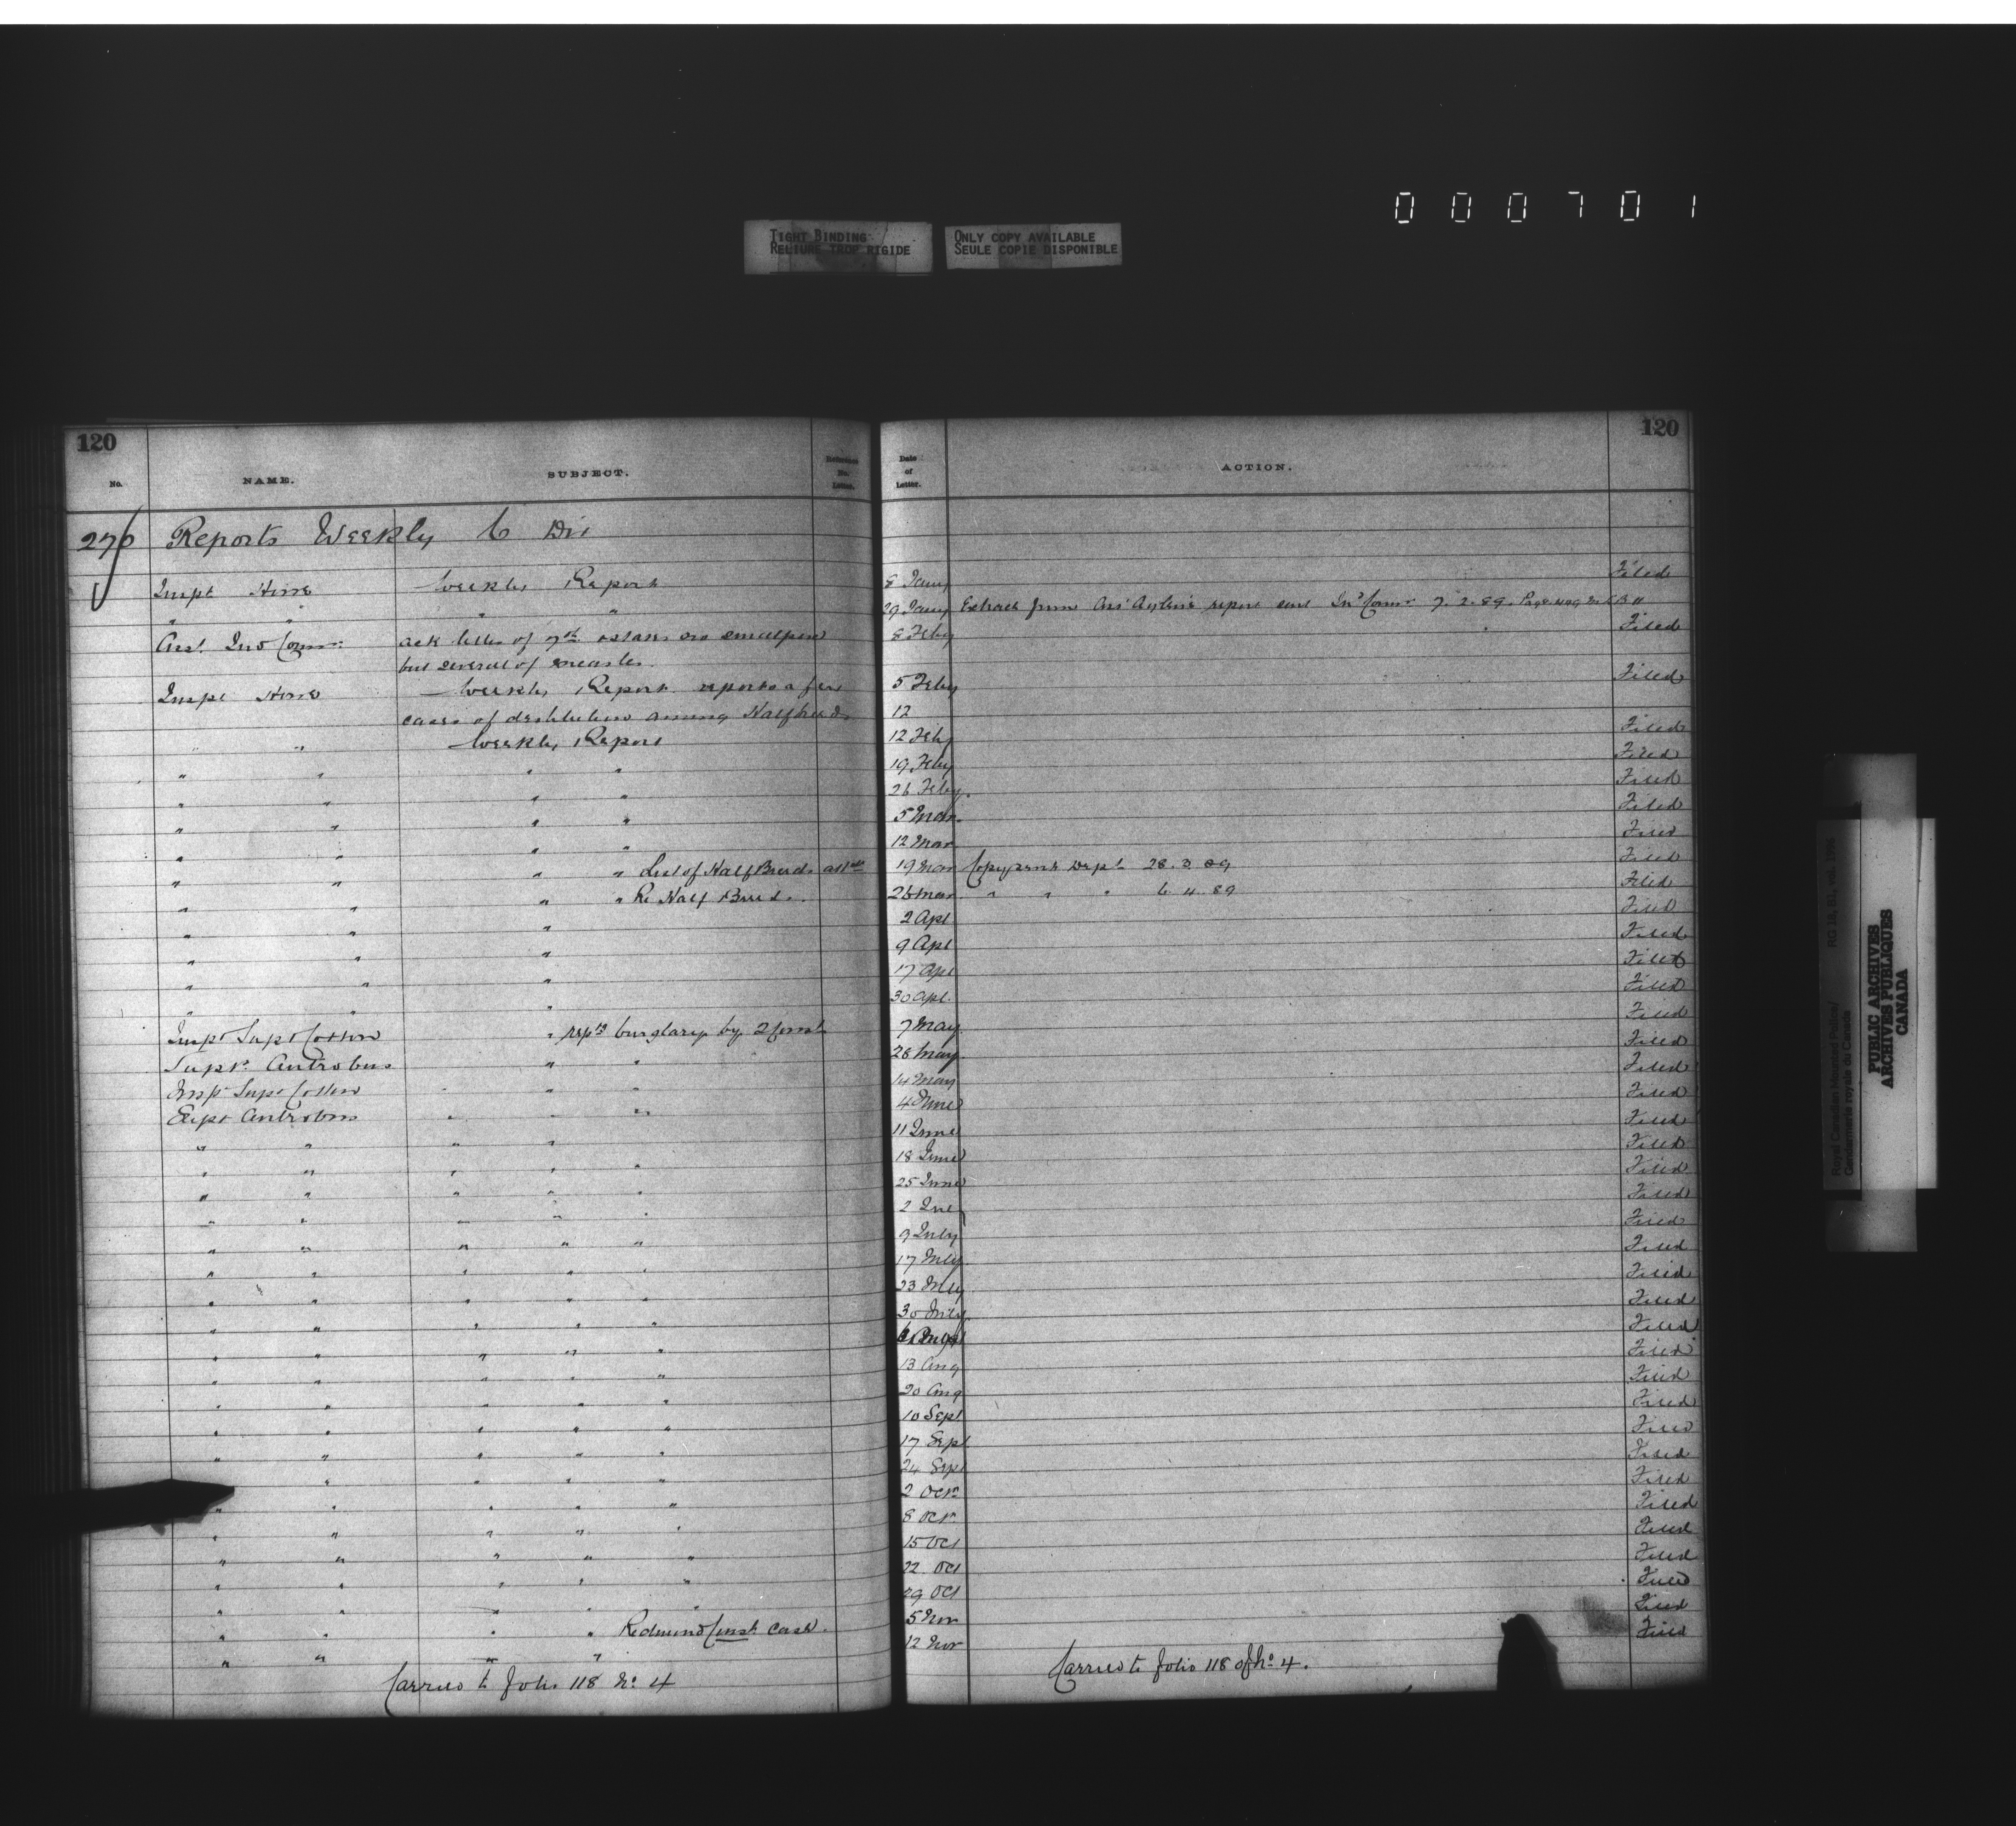 000701
TIGHT BINDING
RELIURE TROP RIGIDE
ONLY COPY AVAILABLE
SEULE COPIE DISPONIBLE
120
No.
NAME.
SUBJECT.
Reference No. Letter.
Date of Letter.
ACTION.
120
276 Reports Weekly C Div
Weekly Report 8 Jany Filed
" " " " 29 Jany Extract from report sent Ind Comr 7.2.89.
Asst. Ind Comr: ack letter of 7th no smallpox 8 Feby Filed
but several of measles.
Weekly Report reports a few 5 Feby Filed
cases of destitution among Halfbreeds 12
" " Weekly Report 12 Feby Filed
" " " " 19 Feby Filed
" " " " 26 Feby. Filed
" " " " 5 Mar. Filed
" " " " 12 Mar Filed
" " " " List of Half Breeds 19 Mar Copy sent Dept 28.3.89 Filed
" " " " Re Half Breeds. 26 Mar " " " 6.4.89 Filed
" " " 2 Apl Filed
" " " 9 Apl Filed
" " " 17 Apl Filed
" " " 30 Apl. Filed
Supt Cotton " rept's burglary by 2 Const 7 May Filed
Supt. Antrobus " " 28 May Filed
Supt Cotton " " " 14 May Filed
Supt Antrobus " " " 4 June Filed
" " " " 11 June Filed
" " " " " 18 June Filed
" " " " " 25 June Filed
" " " " " 2 July Filed
" " " " " 9 July Filed
" " " " " 17 July Filed
" " " " " 23 July Filed
" " " " " 30 July Filed
" " " " " Filed
" " " " " 13 Aug Filed
" " " " " 20 Aug Filed
" " " " " 10 Sept Filed
" " " " " 17 Sept Filed
" " " " " 24 Sept Filed
" " " " " 2 Oct. Filed
" " " " " 8 Oct. Filed
" " " " " 15 Oct Filed
" " " " " 22 Oct Filed
" " " " " 29 Oct Filed
" " " " Redmund Const. case. 5 Nov Filed
" " " " 12 Nov Filed
Carried to folio 118 No. 4
Carried to folio 118 of No. 4.
Royal Canadian Mounted Police/
Gendarmerie royale du Canada
RG 18, B1, vol. 1996
PUBLIC ARCHIVES
ARCHIVES PUBLIQUES
CANADA